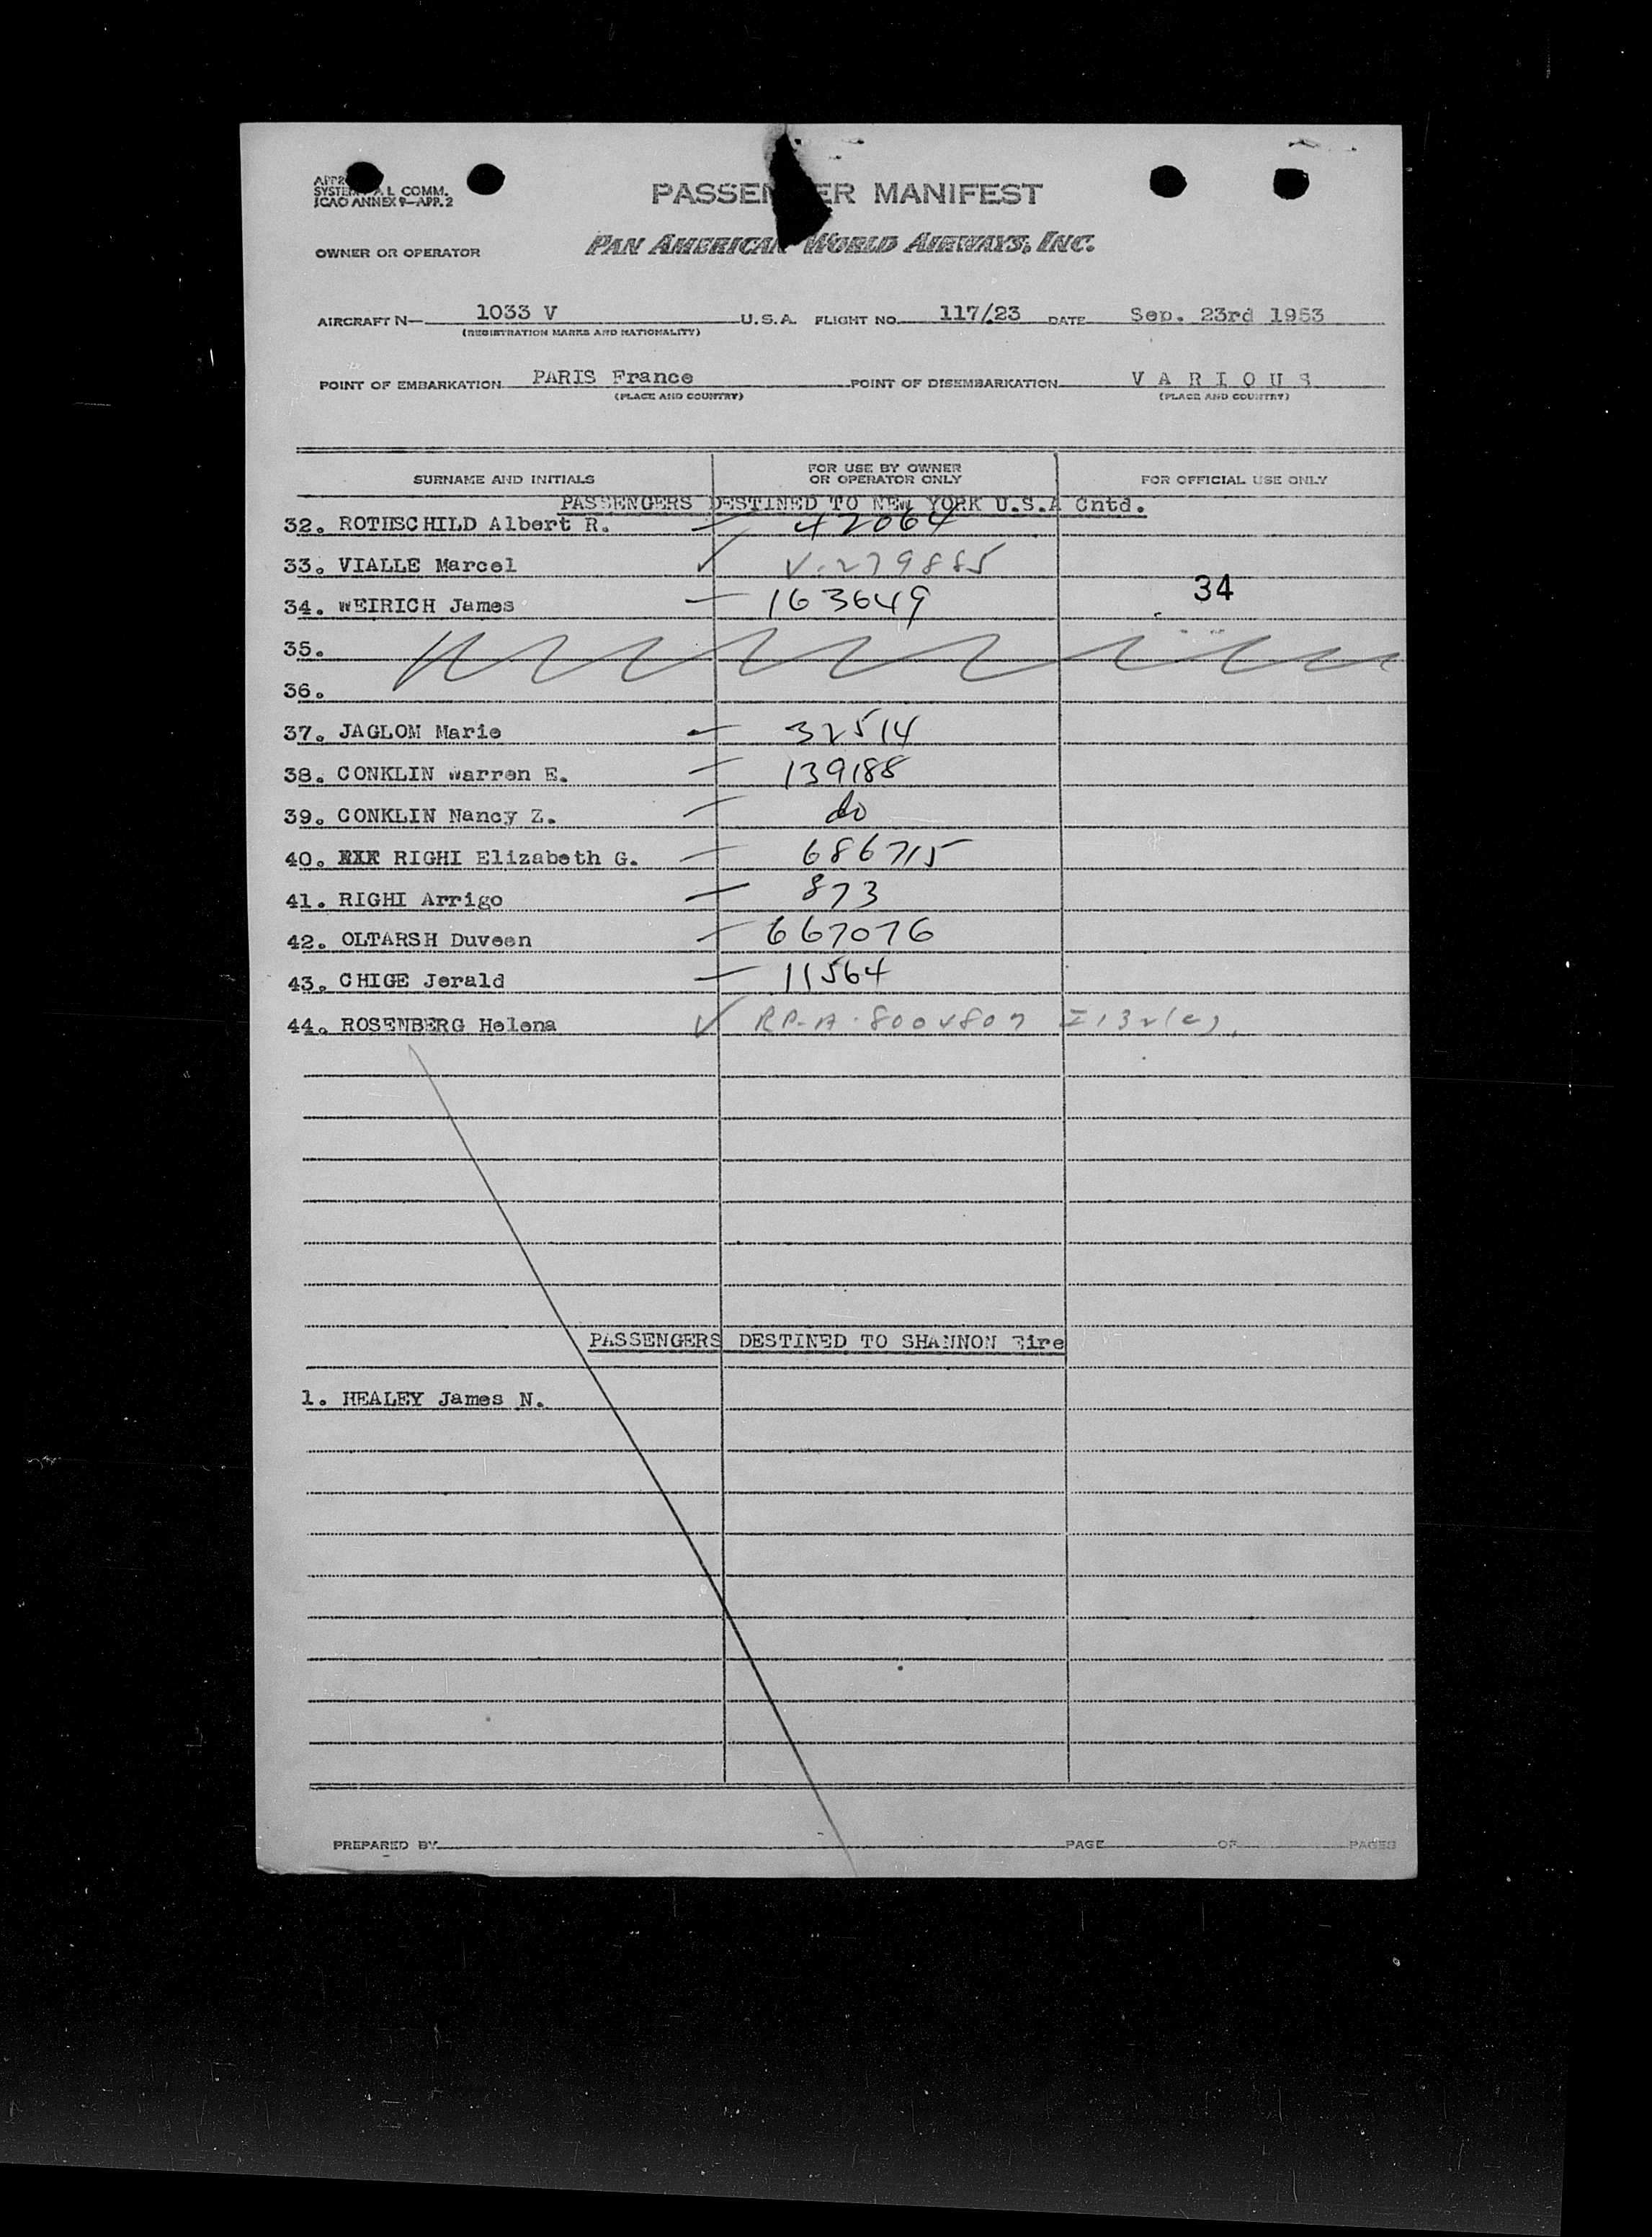 SYSTEM A L COMM.
ICAO ANNEX 9—APP. 2
PASSENGER MANIFEST
OWNER OR OPERATOR PAN AMERICAN WORLD AIRWAYS, INC.
AIRCRAFT N— 1033 V U.S.A. FLIGHT NO. 117/23 DATE Sep. 23rd 1953
(REGISTRATION MARKS AND NATIONALITY)
POINT OF EMBARKATION PARIS France POINT OF DISEMBARKATION V A R I O U S
(PLACE AND COUNTRY) (PLACE AND COUNTRY)
SURNAME AND INITIALS FOR USE BY OWNER OR OPERATOR ONLY FOR OFFICIAL USE ONLY
PASSENGERS DESTINED TO NEW YORK U.S.A Cntd.
32. ROTHSCHILD Albert R. — 42064
33. VIALLE Marcel ✓ V.279885
34. WEIRICH James — 163649 34
35.
36.
37. JAGLOM Marie — 32514
38. CONKLIN Warren E. — 139188
39. CONKLIN Nancy Z. — do
40. RIGHI Elizabeth G. — 686715
41. RIGHI Arrigo — 873
42. OLTARSH Duveen — 667076
43. CHIGE Jerald — 11564
44. ROSENBERG Helena ✓ RP-A-
PASSENGERS DESTINED TO SHANNON Eire
1. HEALEY James N.
PREPARED BY PAGE OF PAGES